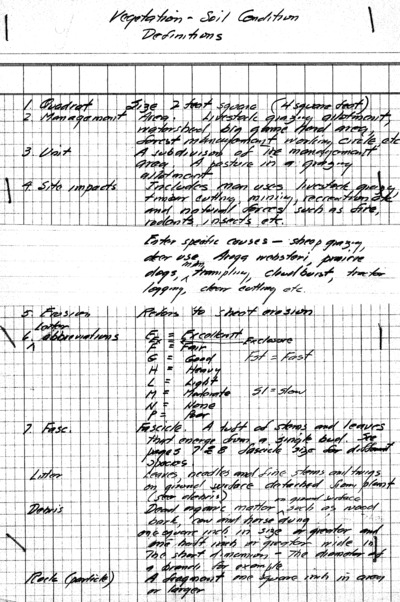 Vegetation - Soil Condition
Definitions
1. Quadrat Size 2 feet square (4 square feet)
2. Management Area. Livestock grazing allotment,
watershed, big game herd area,
forest management working circle, etc.
3. Unit A subdivision of the management
area. A pasture in a grazing
allotment
4. Site impacts Includes man uses, livestock grazing,
timber cutting, mining, recreation etc
and natural forces such as fire,
rodents, insects etc.
Enter specific causes - sheep grazing,
deer use, webstori, prairie
dogs, man trampling, cloudburst, tractor
logging, clear cutting etc.
5. Erosion Refers to sheet erosion
6. Letter abbreviations E = Excellent
Ex = Exclosure
F = Fair
G = Good Fst = Fast
H = Heavy
L = Light
M = Moderate Sl = Slow
N = None
P = Poor
7. Fasc. Fascicle. A tuft of stems and leaves
that emerge from a single bud. See
pages 7 & 8 fascicle size for different
species
Litter Leaves, needles and fine stems and twigs
on ground surface detached from plant
(see debris)
Debris Dead organic matter on ground surface such as wood
bark, cow and horse dung
one square inch in size or greater and
one half inch or greater wide in
the short dimension - The diameter of
a branch for example
Rock (particle) A fragment one square inch in area
or larger